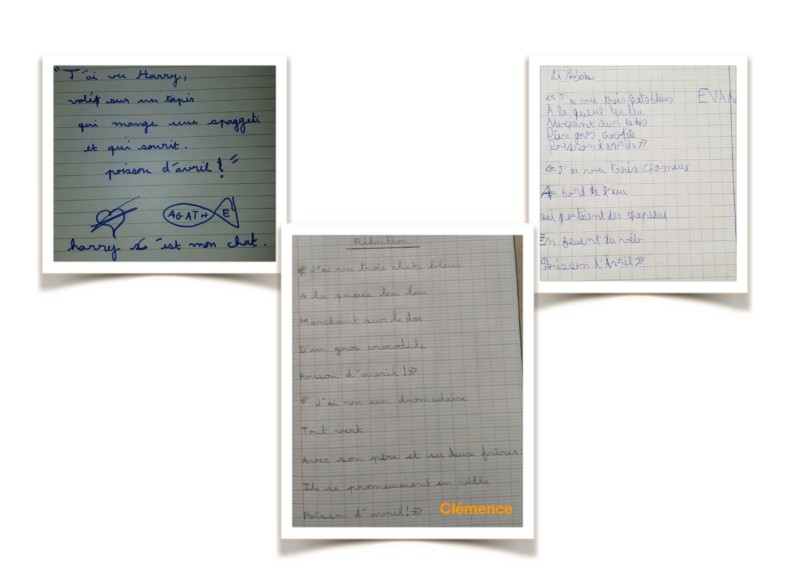 "J'ai vu Harry,
volé sur un tapis
qui mange une spaggeti
et qui sourit.
poisson d'avril ! "
AGATHE
harry s'est mon chat.
EVAN
« J'ai vu trois
A la queue leu leu
Marchant sur le dos
D'un gros
Poisson d'avril »
« J'ai vu trois chameaux
Au bord de l'eau
qui portaient des chapeaux
En fesent du vélo
Poisson d'Avril »
Rédaction
« J'ai vu trois chats bleus
A la queue leu leu
Marchant sur le dos
D'un gros crocodile
Poisson d'avril ! »
« J'ai vu un dromadaire
Tout vert
Avec son père et ses deux frères
Ils se promenaient en ville
Poisson d'avril ! »
Clémence